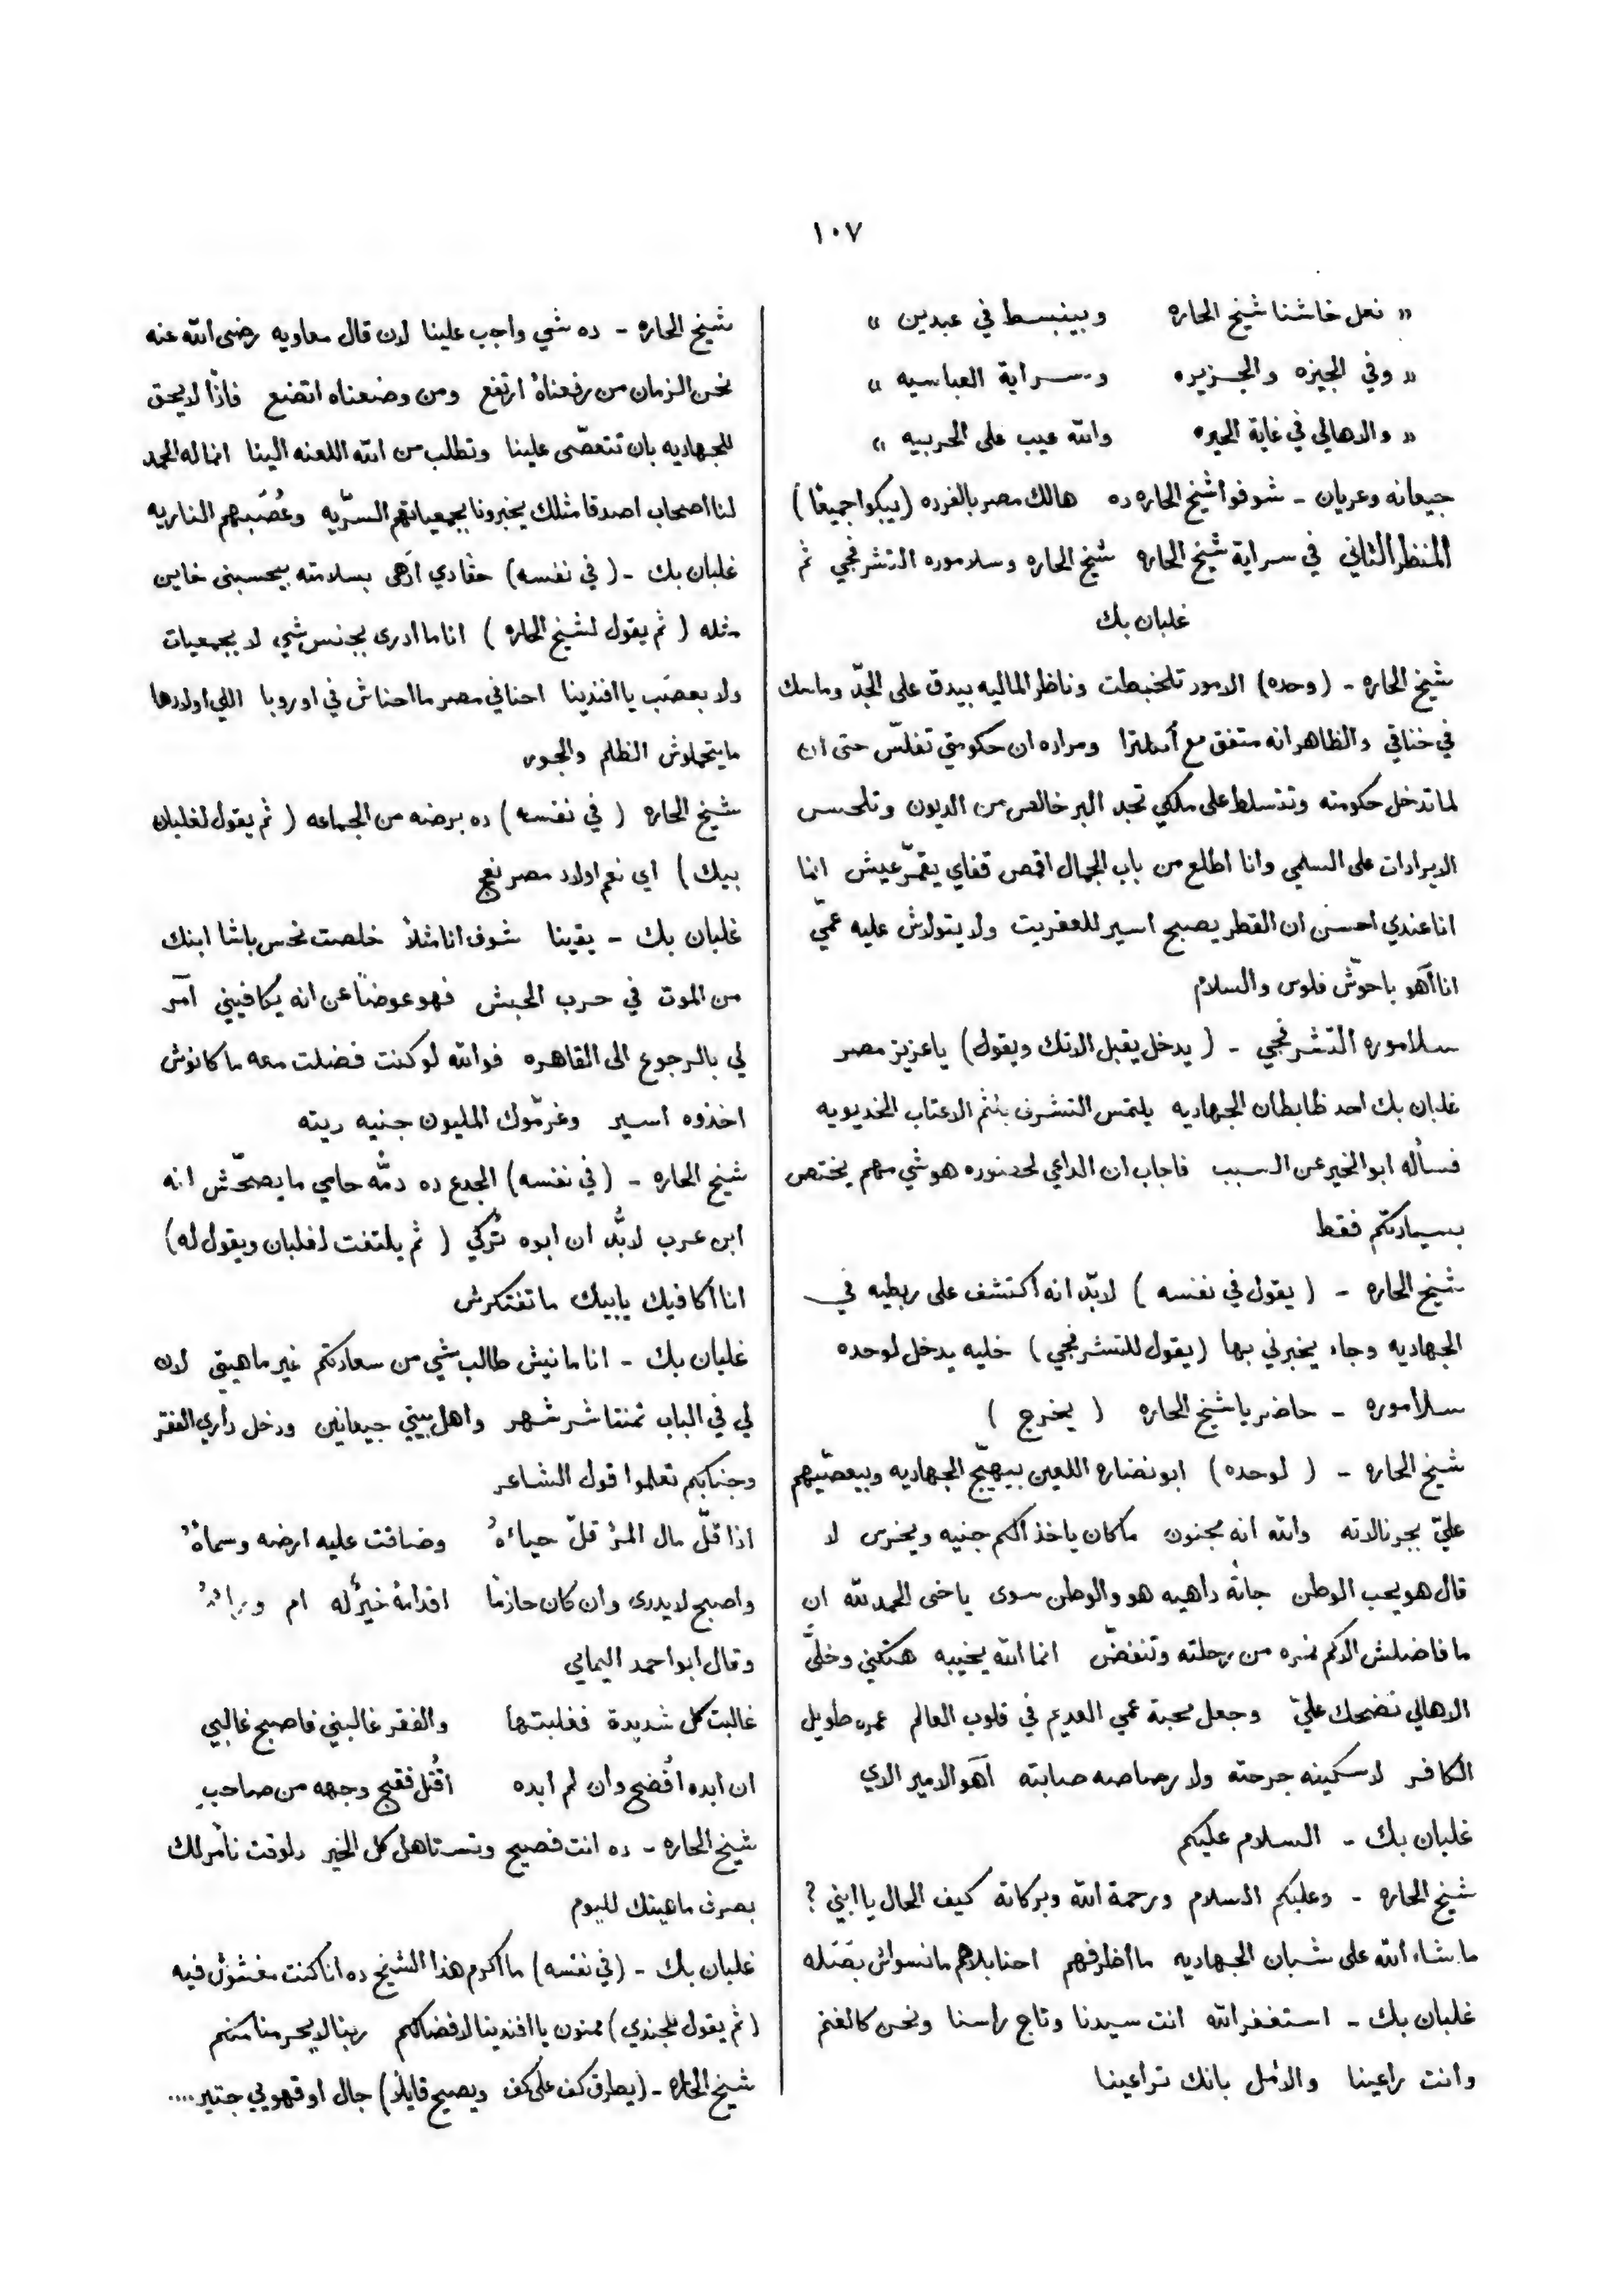 ١٠٧
« نعل خاشنا شيخ الحاره وبينبسط في عبدين »
« وفي الجيزه والجزيره وسراية العباسيه »
« والاهالي في غاية الحيره والله عيب على الحربيه »
جيعانه وعريان ـ شوفوا شيخ الحاره ده هالك مصر بالفرده (يبكوا جميعًا)
المنظر الثاني في سراية شيخ الحاره شيخ الحاره وسلاموره التشرفجي ثم
غلبان بك
شيخ الحاره ـ (وحده) الامور تلخبطت وناظر الماليه بيدق على الجدّ وماسك
في خناقي والظاهر انه متفق مع أنملترا ومراده ان حكومتي تفلّس حتى ان
لما تدخل حكومته وتتسلط على ملكي تجد البر خالص من الديون وتلحس
الايرادات على السلمي وانا اطلع من باب الجمال اقمص قفاي يقمّر عيش انما
انا عندي احسن ان القطر يصبح اسير للعفريت ولا يتولاش عليه عمّي
انا آهو باحوّش فلوس والسلام
سلاموره التشرفجي ـ (يدخل يقبل الاتك ويقول) ياعزيز مصر
غلبان بك احد ظابطان الجهاديه يلتمس التشرف بلثم الاعتاب الخديويه
فسأله ابو الخير عن السبب فاجاب ان الداعي لحضوره هو شي مهم يختص
بسيادتكم فقط
شيخ الحاره ـ (يقول في نفسه) لابدّ انه اكتشف على ربطيه في
الجهاديه وجاء يخبرني بها (يقول للتشرفجي) خليه يدخل لوحده
سلاموره ـ حاضر يا شيخ الحاره (يخرج)
شيخ الحاره ـ (لوحده) ابو نضاره اللعين بيهيّج الجهاديه وبيعصّيهم
عليّ بجرنالاته والله انه مجنون ما كان ياخذ الكم جنيه ويخرس لا
قال هو يحب الوطن جاته داهيه هو والوطن سوى ياخى الحمد لله ان
ما فاضلش الا كم نمره من رحلته وتنفضّ انما الله يخيبه هتكني وخلّى
الاهالي تضحك عليّ وجعل محبة عمي العديم في قلوب العالم عمره طويل
الكافر لا سكينه جرحته ولا رصاصه صابته آهو الامير الاي
غلبان بك ـ السلام عليكم
شيخ الحاره ـ وعليكم السلام ورحمة الله وبركاته كيف الحال يا ابني ؟
ما شاء الله على شبان الجهاديه ما اظرفهم احنا بلاهم ما نسواش بصَله
غلبان بك ـ استغفر الله انت سيدنا وتاج راسنا ونحن كالغنم
وانت راعينا والأمل بانك تراعينا
شيخ الحاره ـ ده شي واجب علينا لان قال معاويه رضى الله عنه
نحن الزمان من رفعناهُ ارتفع ومن وضعناه اتضع فاذًا لا يحق
للجهاديه بان تتعصّى علينا وتطلب من الله اللعنه الينا انما له الحمد
لنا اصحاب اصدقا مثلك يخبرونا بجمعياتهم السرّيه وعُصَبهم الناريه
غلبان بك ـ (في نفسه) حقا دي آهى بسلامته بيحسبنى خاين
مثله (ثم يقول لشيخ الحاره) انا ما ادرى بجنس شي لا بجمعيات
ولا بعصَب يا افندينا احنا في مصر ما احناش في اوروبا اللي اولادها
ما يتحملوش الظلم والجور
شيخ الحاره (في نفسه) ده برضه من الجماعه (ثم يقول لغلبان
بيك) اي نعم اولاد مصر نعج
غلبان بك ـ يقينا شوف انا مثلاً خلصت نحس باشا ابنك
من الموت في حرب الحبش فهو عوضاً عن انه يكافيني آمر
لي بالرجوع الى القاهره فوالله لو كنت فضلت معه ما كانوش
اخذوه اسير وغرمّوك المليون جنيه ديته
شيخ الحاره ـ (في نفسه) الجدع ده دمُّه حامي ما يصحّش انه
ابن عرب لابُّد ان ابوه تُركي (ثم يلتفت لغلبان ويقول له)
انا اكافيك يا بيك ما تفتكرش
غلبان بك ـ انا مانيش طالب شي من سعادتكم غير ماهيتي لان
لي في الباب ثمنتاشر شهر واهل بيتي جيعانين ودخل داري الفقر
وجنابكم تعلموا قول الشاعر
اذا قلّ مال المرْ قلّ حياءهُ وضاقت عليه ارضه وسماهُ
واصبح لا يدرى وان كان حازمًا اقدامهُ خيرٌ له ام وراءهُ
وقال ابو احمد اليماني
غالبت كل شديدة فغلبتها والفقر غالبني فاصبح غالبي
ان ابده افُضح وان لم ابده اقُتل فقبح وجهه من صاحبِ
شيخ الحاره ـ ده انت فصيح وتستاهل كل الخير دلوقت نأمر لك
بصرف ماهيتك لليوم
غلبان بك ـ (في نفسه) ما اكرم هذا الشيخ ده انا كنت مغشوش فيه
(ثم يقول للجندي) ممنون يا افندينا لافضالكم ربنا لا يحرمنا منكم
شيخ الحاره ـ (يطرق كف على كف ويصيح قايلاً) جال او قهوبي جتير ....